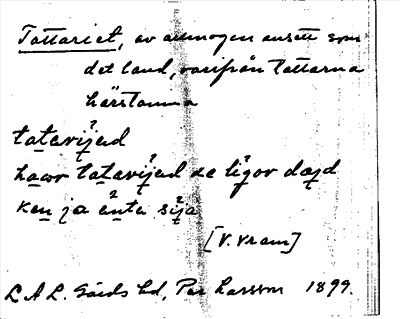 Tattariet, av allmogen ansett som
det land, varifrån tattarna
härstamma
tatarijed
hawr tatarijed se ligor dæjd
ken ja inte sija
[V. Vram]
L A L. Gårds Per Larsson 1899.